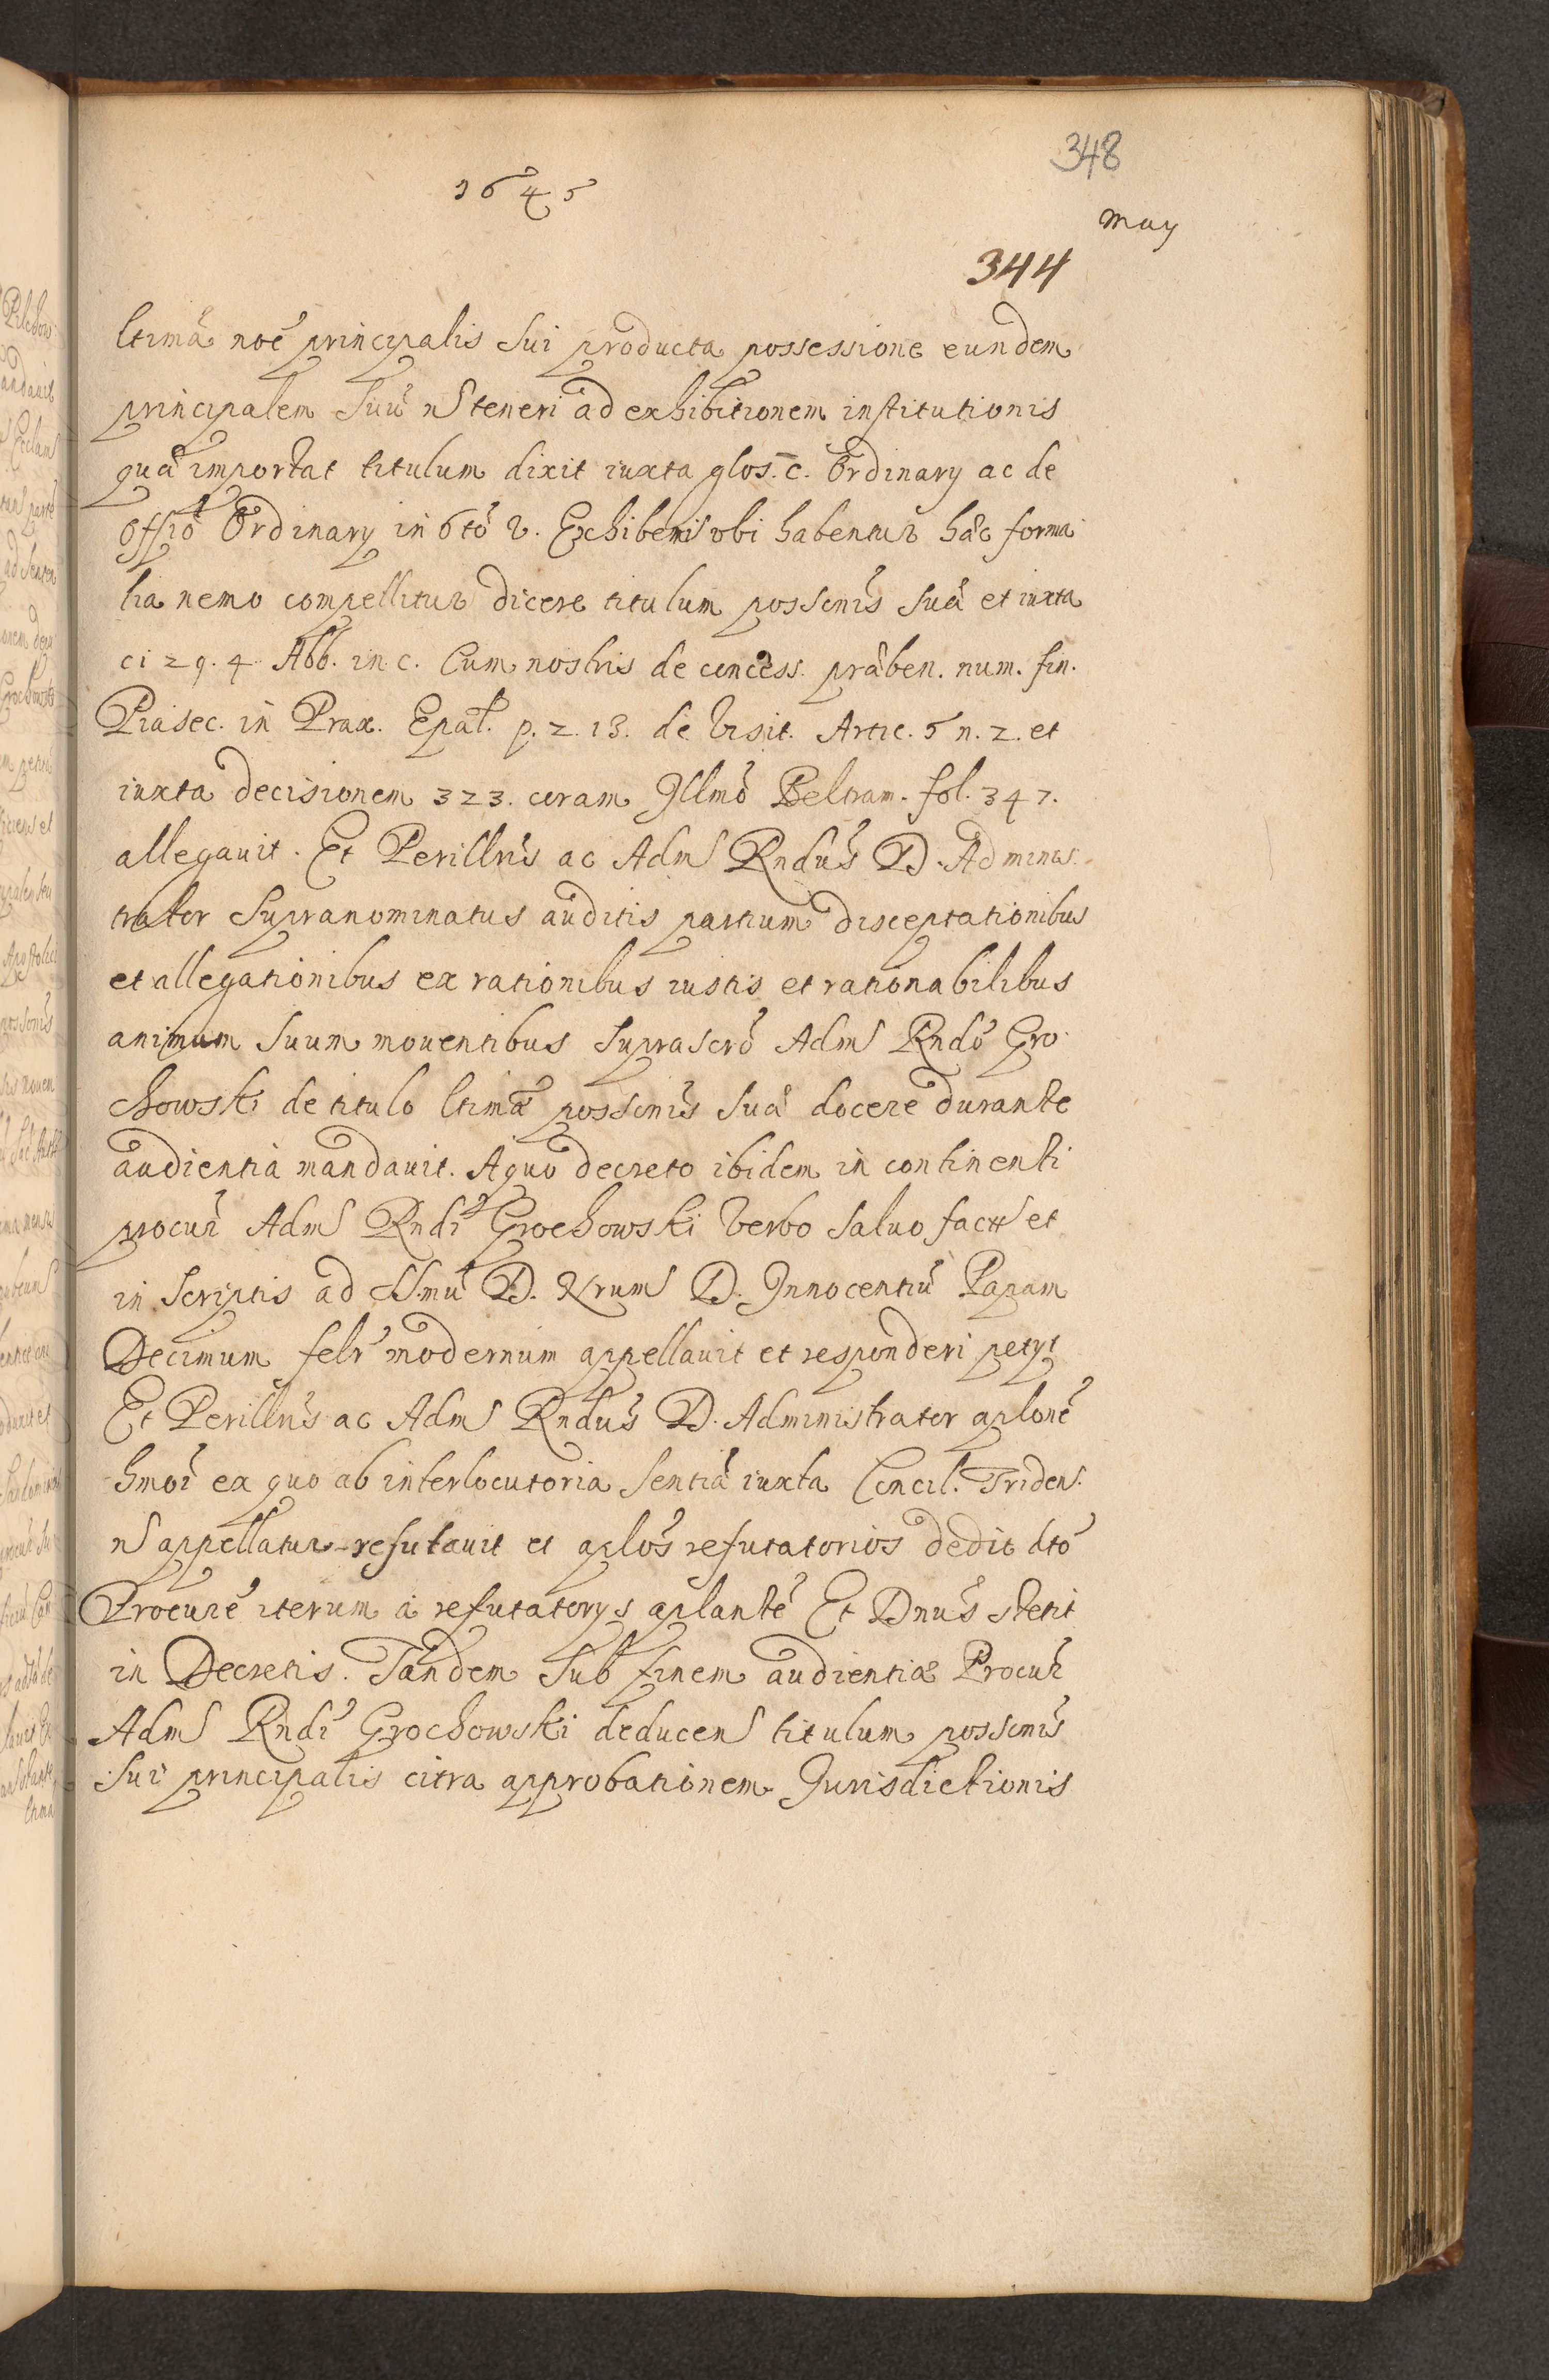 348
1645
May
344
ltimâ noê principalis sui producta possessione eundem
principalem suũ nS teneri ad exhibitionem institutionis
quâ importat titulum dixit iuxta glos. c. Ordinary ac de
Offiô Ordinary in 6tô v. Exhibeni ubi habentur hâc forma
lia nemo compellitur dicere titulum possonis suâ et iuxta
ci 2 q. 4 Abb. in c. Cum nostris de concess. prâben. num. fin.
Piasec. in Prax. Epal. p. 2. 13. de Visit. Artic. 5 n. 2. et
iuxta decisionem 323. coram Illmô Beltram. fol. 347.
allegavit. Et Perillris ac Adm Rndus D. Adminis-
trator supranominatus auditis partium disceptationibus
et allegationibus ex rationibus iustis et rationabilibus
animum suum moventibus suprascrô Adm Rndô Gro
chowski de titulo ltimâ possonis suâ docere durante
audientia mandavit. A quo decreto ibidem in continenti
procur Adm Rndi Grochowski verbo salvo facto et
in scriptis ad SSmũ D. Nrum D. Innocentiũ Papam
Decimum felr modernum appellavit et responderi petyt
Et Perillris ac Adm Rndus D. Administrator aplonê
hmoi ex quo ab interlocutoria sentiâ iuxta Concil. Triden.
nS appellatur refutavit et aplôs refutatorios dedit dtô
Procurê iterum a refutatorys aplantê Et Dnus stetit
in Decretis. Tandem sub finem audientiæ Procur
Adm Rndi Grochowski deducens titulum possonis
sui principalis citra approbationem Jurisdictionis